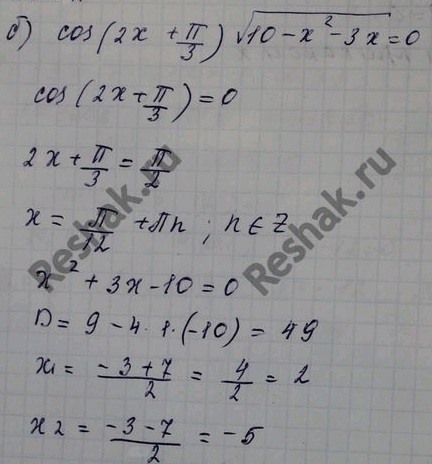 б) cos(2x + π/3) √(10 - x² - 3x) = 0
cos(2x + π/3) = 0
2x + π/3 = π/2
x = π/12 + πn ; n ∈ Z
x² + 3x - 10 = 0
D = 9 - 4 · 1 · (-10) = 49
x1 = (-3 + 7)/2 = 4/2 = 2
x2 = (-3 - 7)/2 = -5
Reshak.ru
Reshak.ru